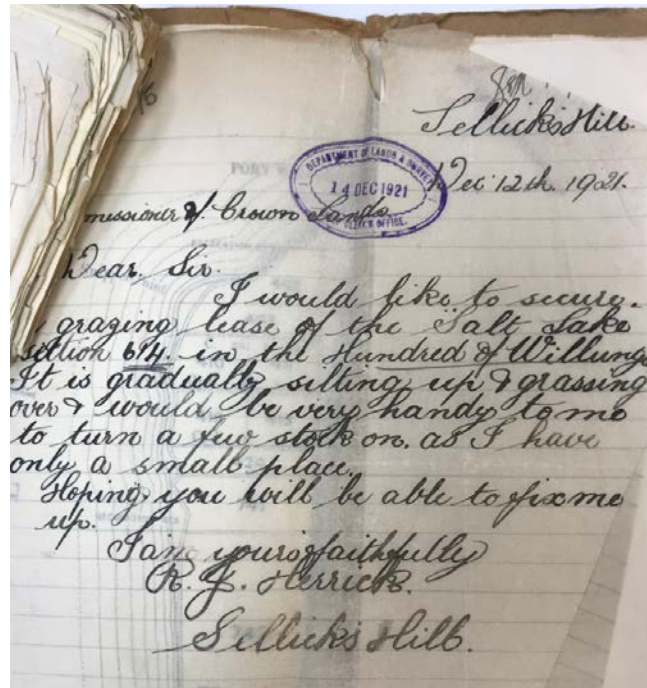 Sellick's Hill.
Dec 12th. 1921.
DEPARTMENT OF LANDS & SURVEY
14 DEC 1921
OFFICE.
missioner of Crown Lands
Dear. Sir.
I would like to secure.
grazing lease of the Salt Lake
section 614. in the Hundred of Willunga
It is gradually silting up & grassing
over & would be very handy to me
to turn a few stock on. as I have
only a small place.
Hoping you will be able to fix me
up.
I am yours faithfully
R. J. Herrick.
Sellick's Hill.